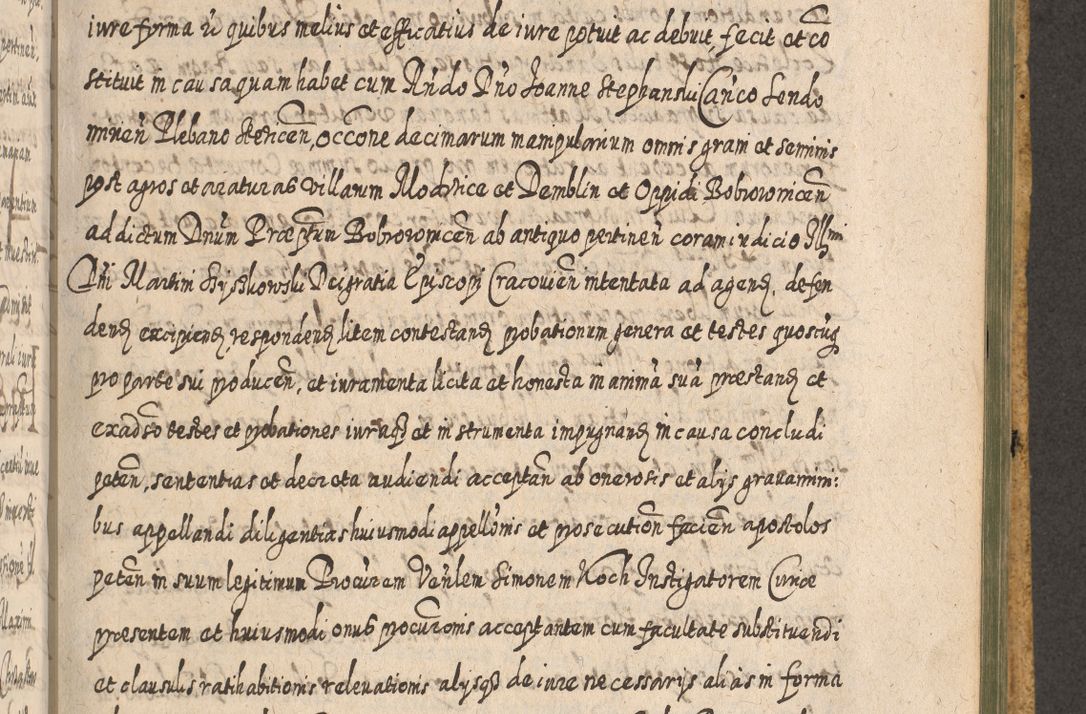 iure forma et quibus melius et efficatius de iure potuit ac debuit, fecit et co
stituit in causa quam habet cum Rndo Dno Joanne Stephanski Canco Sendo
mirien Plebano Stericen, occone decimarum manipularium omnis grani et seminis
post agros et araturas Villarum Modrice et Demblin et Oppidi Bobrowicen
ad dictum Dnum Præptum Bobrowicen ab antiquo pertinen coram iudicio Illmi
Dni Martini Szyszkowski Dei gratia Episcopi Cracovien intentata ad agend, defen
dend excipiend, respondend litem contestand probationum genera et testes quoscuq
pro parte sui producen, et iuramenta licita et honesta in anima sua præstand et
ex adso testes et probationes iuraq et instrumenta impugnand in causa concludi
peten, sententias et decreta audiendi acceptan ab onerosis et alys gravamini:
bus appellandi diligentias huiusmodi appellonis et prosecution facien apostolos
peten in suum legitimum Procurem Venlem Simonem Koch Instigatorem Curiæ
præsentem et huiusmodi onus procuronis acceptantem cum facultate substituendi
et clausulis ratihabitionis relevationis alysq de iure necessarys alias in forma